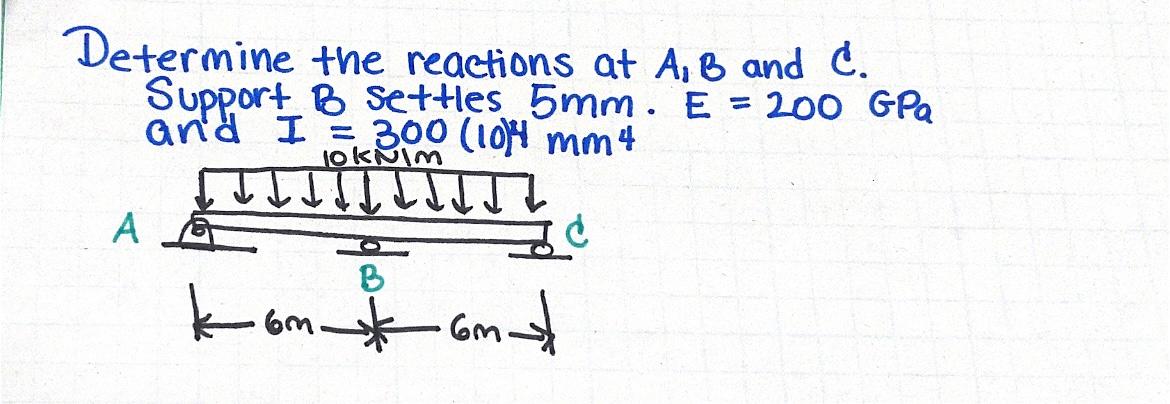 Determine the reactions at A, B and C.
Support B settles 5mm. E = 200 GPa
and I = 300 (10)4 mm4
10kN/m
A
C
B
6m
6m